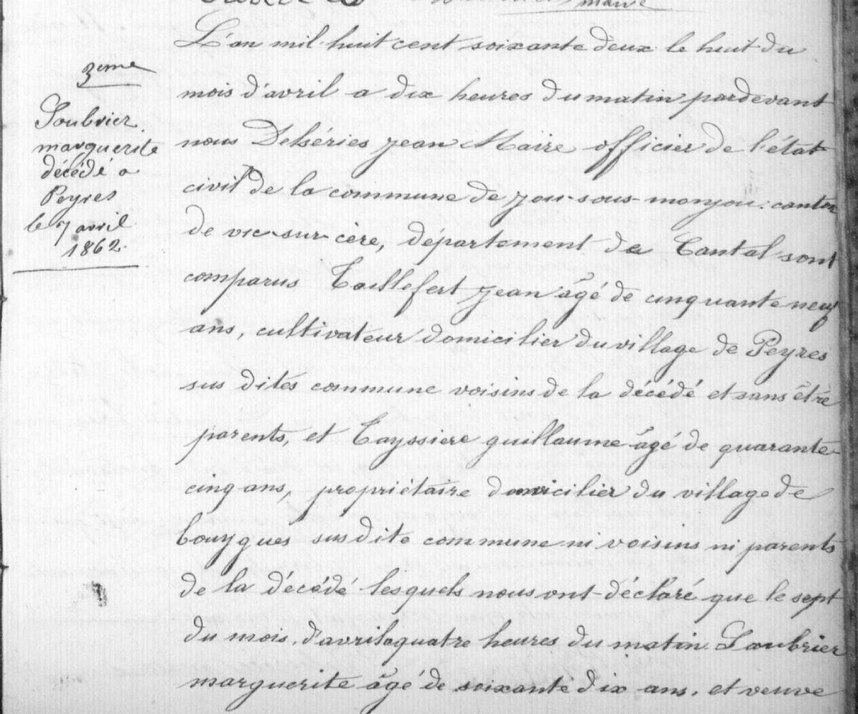 maire
3eme
Soubrier
marguerite
décédé a
Peyres
le 7 avril
1862.
L'an mil huit cent soixante deux le huit du
mois d'avril a dix heures du matin pardevant
nous Delséries jean Maire officier de l'état
civil de la commune de jou-sous-monjou canton
de vic-sur-cère, département du Cantal sont
comparus Taillefert jean âgé de cinquante neuf
ans, cultivateur domicilier du village de Peyres
sus dites commune voisins de la décédé et sans être
parents, et Tayssiere guillaume âgé de quarante
cinq ans, propriétaire domicilier du village de
bouygues sus dite commune ni voisins ni parents
de la décédé lesquels nous ont déclaré que le sept
du mois d'avril a quatre heures du matin Soubrier
marguerite âgé de soixante dix ans, et veuve